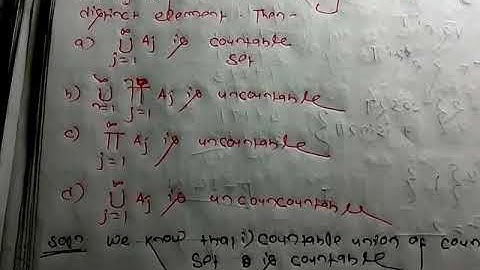 distinct element. Then-
a) ∞ ∪ j=1 Aj is countable
set
b) ∞ ∪ n=1 ∏ j=1 Aj is uncountable
c) ∞ ∏ j=1 Aj is uncountable
d) ∞ ∪ j=1 Aj is uncouncountable
Soln: We know that i) countable union of coun
set is countable